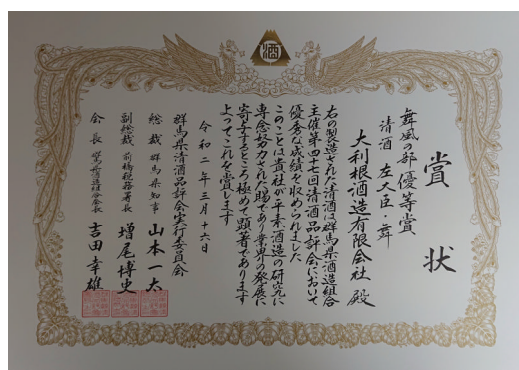 酒
賞状
舞風の部 優等賞
清酒 左大臣・舞
大利根酒造有限会社 殿
右の製造された清酒は群馬県酒造組合
主催第四十七回清酒品評会において
優秀な成績を収められました
このことは貴社が平素酒造の研究に
専念努力された賜であり業界の発展に
寄与するところ極めて顕著であります
よってこれを賞します
令和二年三月十六日
群馬県清酒品評会実行委員会
総裁 群馬県知事 山本一太
副総裁 前橋税務署長 増尾博史
会長 群馬県酒造組合会長 吉田幸雄